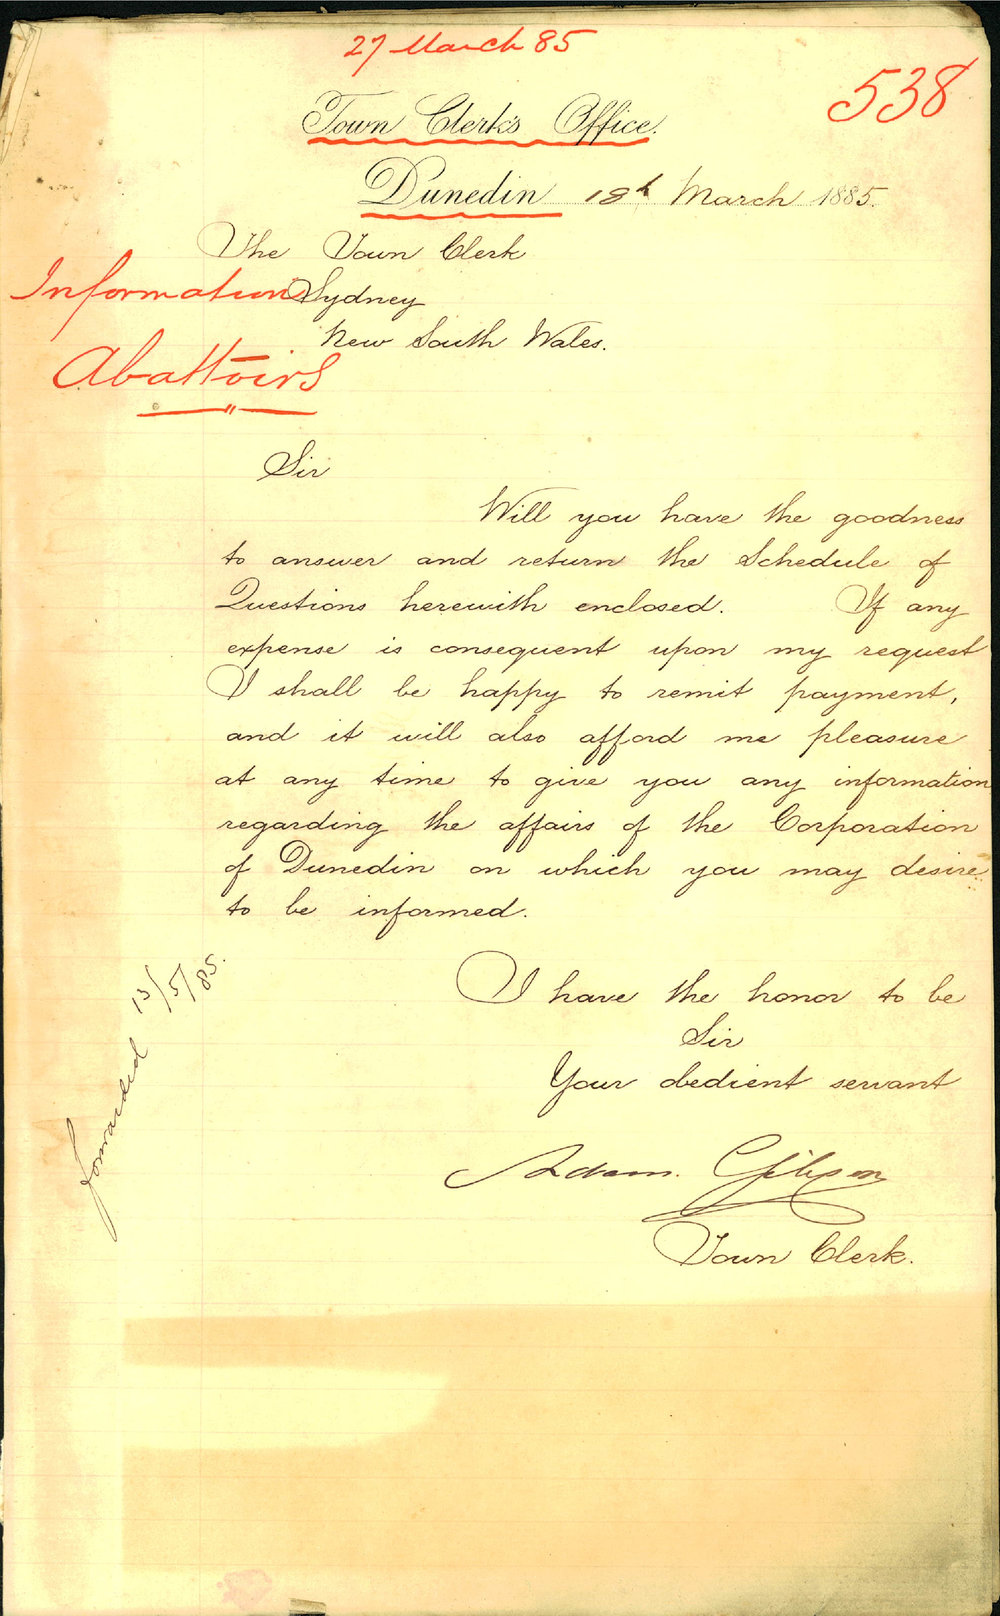 27 March 85
538
Town Clerk's Office.
Dunedin 18th March 1885.
The Town Clerk
Sydney
New South Wales.
Information
Abattoirs
Sir
Will you have the goodness
to answer and return the Schedule of
Questions herewith enclosed. If any
expense is consequent upon my request
I shall be happy to remit payment,
and it will also afford me pleasure
at any time to give you any information
regarding the affairs of the Corporation
of Dunedin on which you may desire
to be informed.
I have the honor to be
Sir
Your obedient servant
Adam. Gibson
Town Clerk.
forwarded 13/5/85.